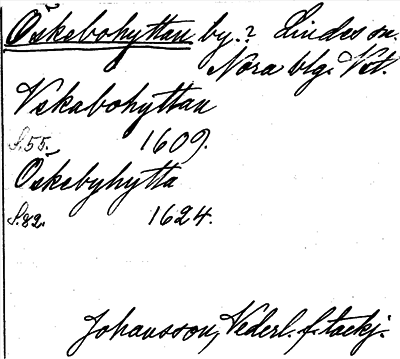 Öskebohyttan by.? Lindes sn.
Nora blg. Vst.
Vskabohyttan
S. 55. 1609.
Öskebyhytta
S. 82. 1624.
Johansson, Vederl. f. tackj.